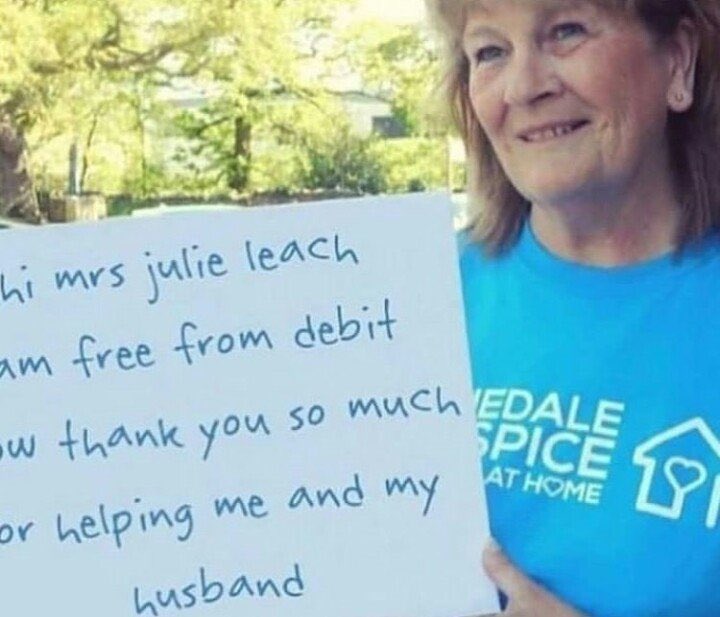 hi mrs julie leach
am free from debit
ow thank you so much
or helping me and my
husband
EDALE
SPICE
AT HOME